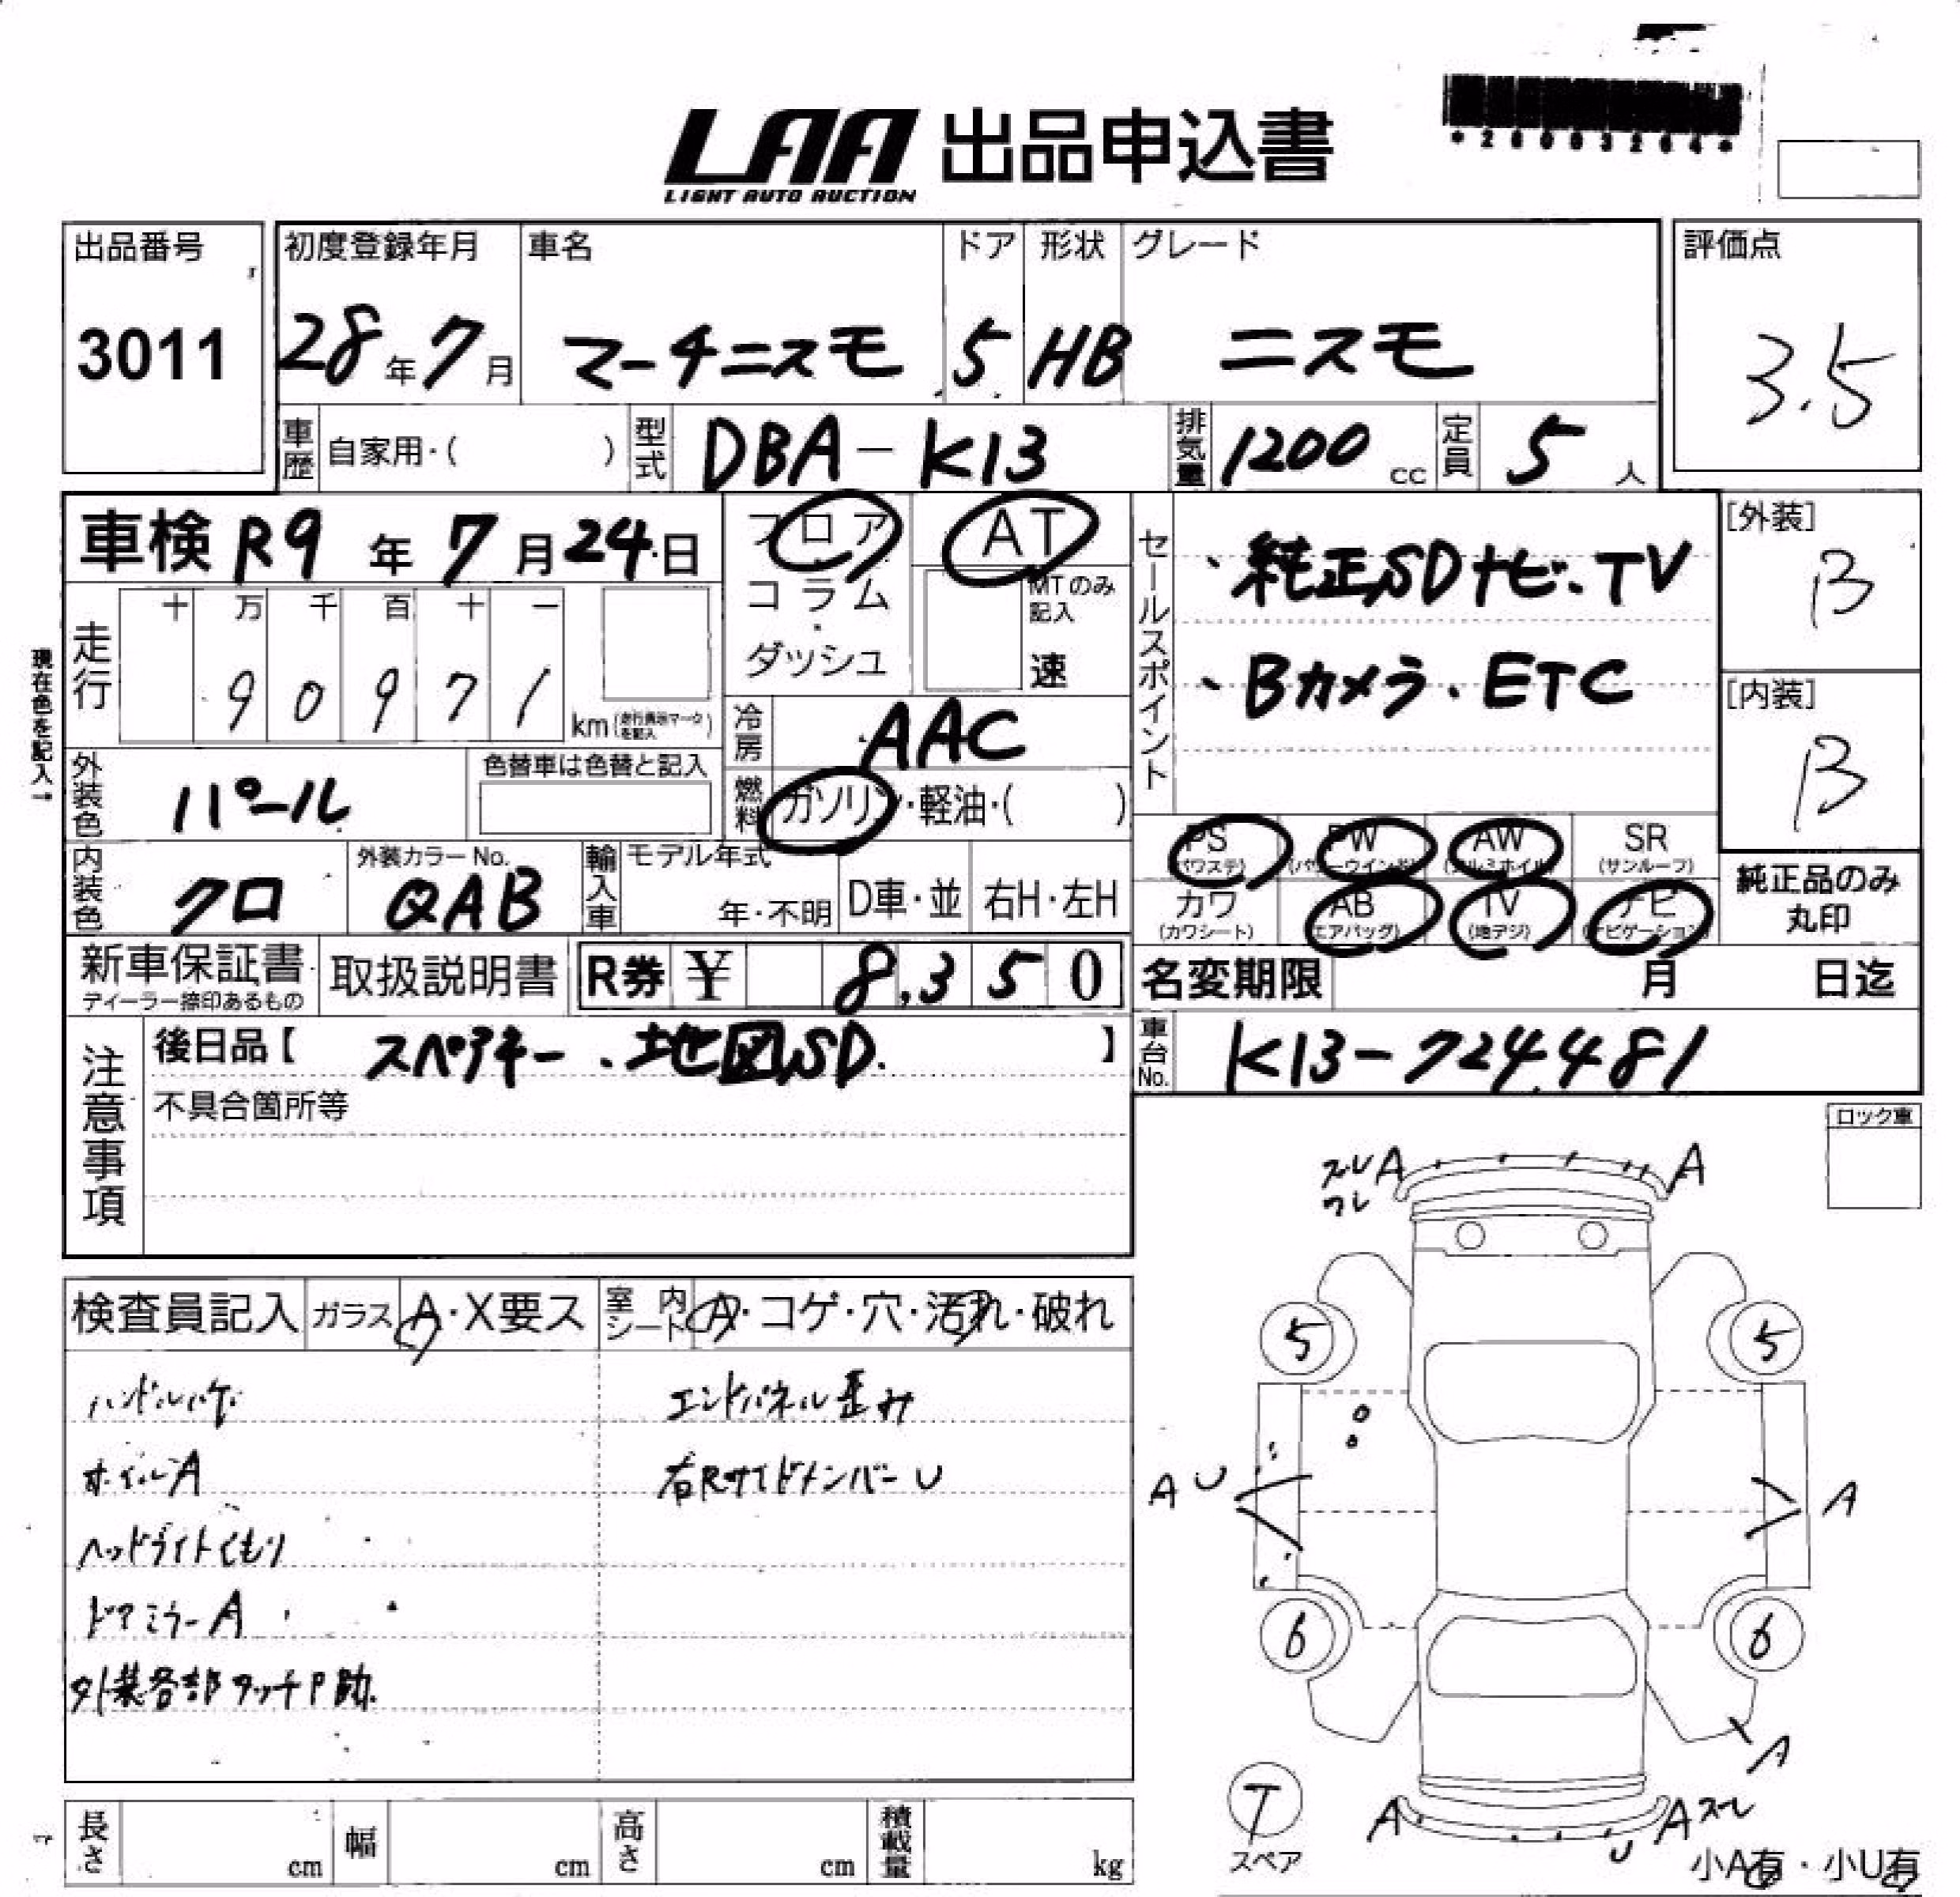 *26003264*
LAA 出品申込書
LIGHT AUTO AUCTION
出品番号 初度登録年月 車名 ドア 形状 グレード 評価点
3011 28年7月 マーチニスモ 5 HB ニスモ 3.5
車歴 自家用・( ) 型式 DBA-K13 排気量 1200cc 定員 5人
車検 R9年7月24日 フロア AT
コラム・ダッシュ MTのみ記入 速
セールスポイント
・純正SDナビ・TV
・Bカメラ・ETC
[外装] B
[内装] B
現在色を記入→
走行 十 万 千 百 十 一
9 0 9 7 1 km (走行異常マークを記入)
冷房 AAC
外装色 パール 色替車は色替と記入
燃料 ガソリン・軽油・( )
PS (パワステ) PW (パワーウインド) AW (アルミホイル) SR (サンルーフ)
カワ (カワシート) AB (エアバッグ) TV (地デジ) ナビ (ナビゲーション)
純正品のみ丸印
内装色 クロ 外装カラーNo. QAB 輸入車 モデル年式 年・不明 D車・並 右H・左H
新車保証書 ディーラー捺印あるもの 取扱説明書 R券 ¥ 8,350 名変期限 月 日迄
注意事項 後日品【 スペアキー、地図SD. 】 車台No. K13-724481
不具合箇所等
ロック車
検査員記入 ガラス A・X要ス 室内シート A・コゲ・穴・汚れ・破れ
ハンドルハゲ エンドパネル歪み
ホイールA 右RサイドメンバーU
ヘッドライトくもり
ドアミラーA
外装各部タッチP跡
スレ A A
ワレ
5 5
A U A
6 6
A
T
スペア
A U A スレ
小A有・小U有
長さ cm 幅 cm 高さ cm 積載量 kg